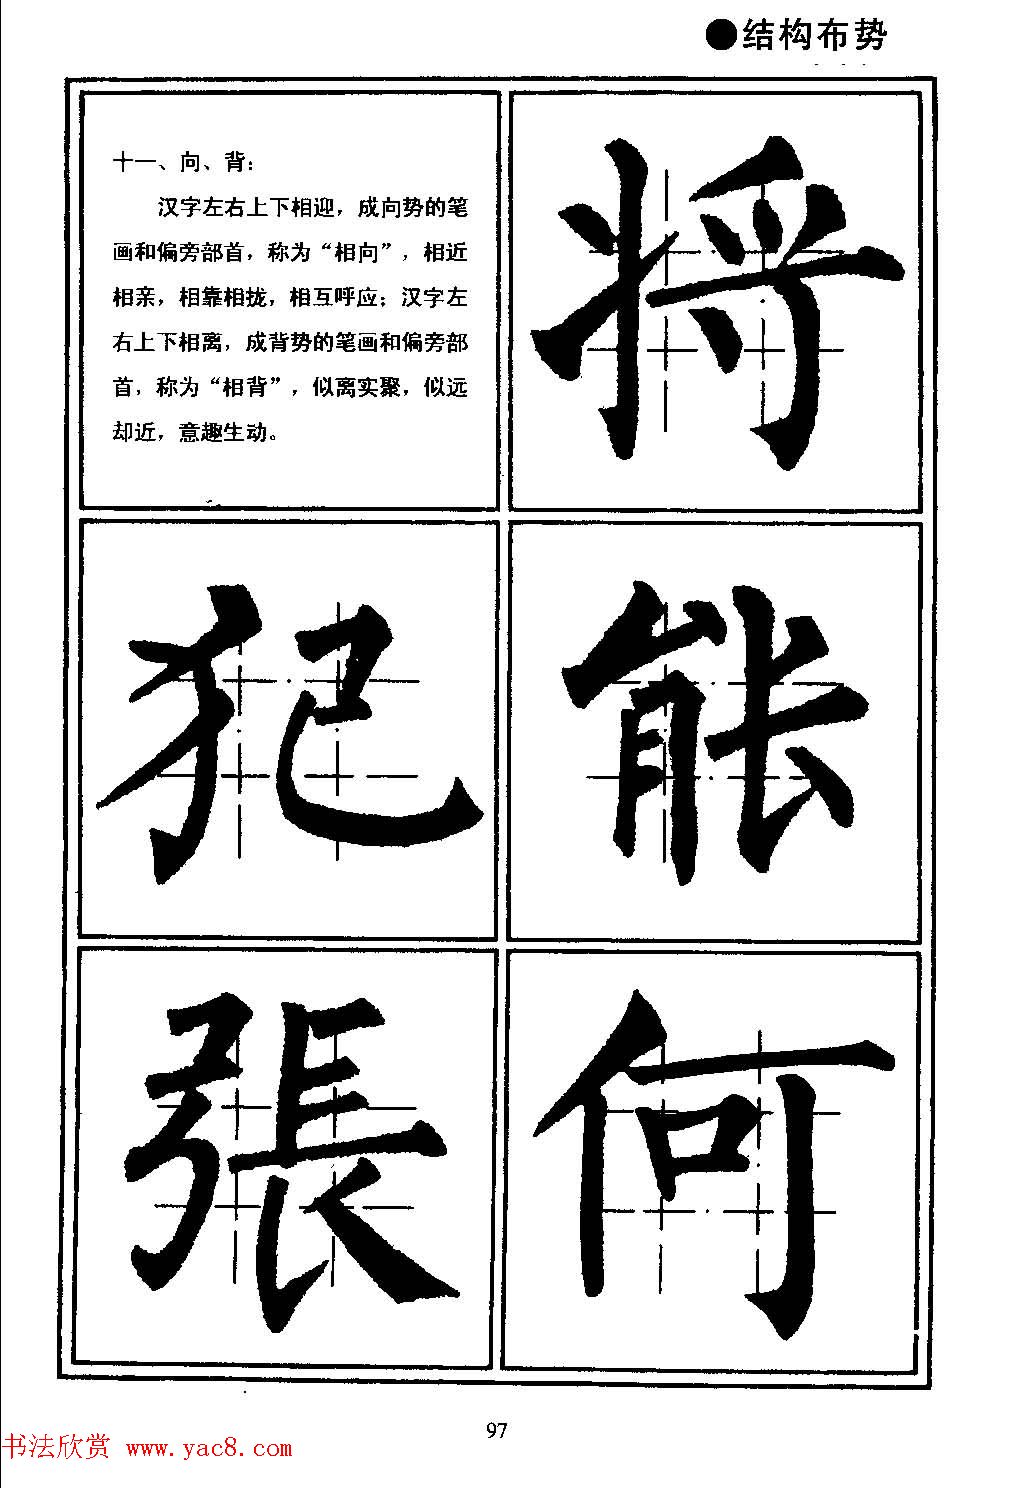 ●结构布势
十一、向、背：
汉字左右上下相迎，成向势的笔
画和偏旁部首，称为“相向”，相近
相亲，相靠相拢，相互呼应；汉字左
右上下相离，成背势的笔画和偏旁部
首，称为“相背”，似离实聚，似远
却近，意趣生动。
将
犯
能
張
何
97
书法欣赏 www.yac8.com